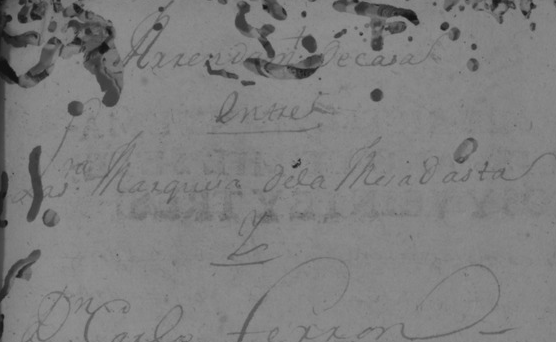 Arrendamto de casa
Entre
La Sra Marquisa dela Mejadasta
Y
Dn Carlo Ferron